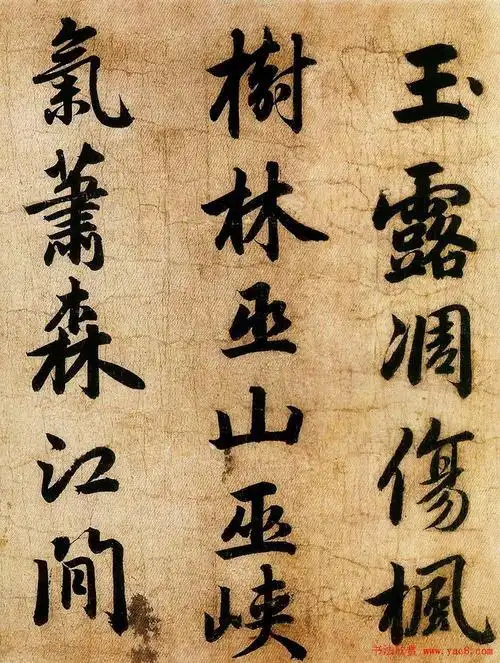 玉露凋傷楓
樹林巫山巫峡
氣蕭森江間
书法欣赏 www.yac8.com